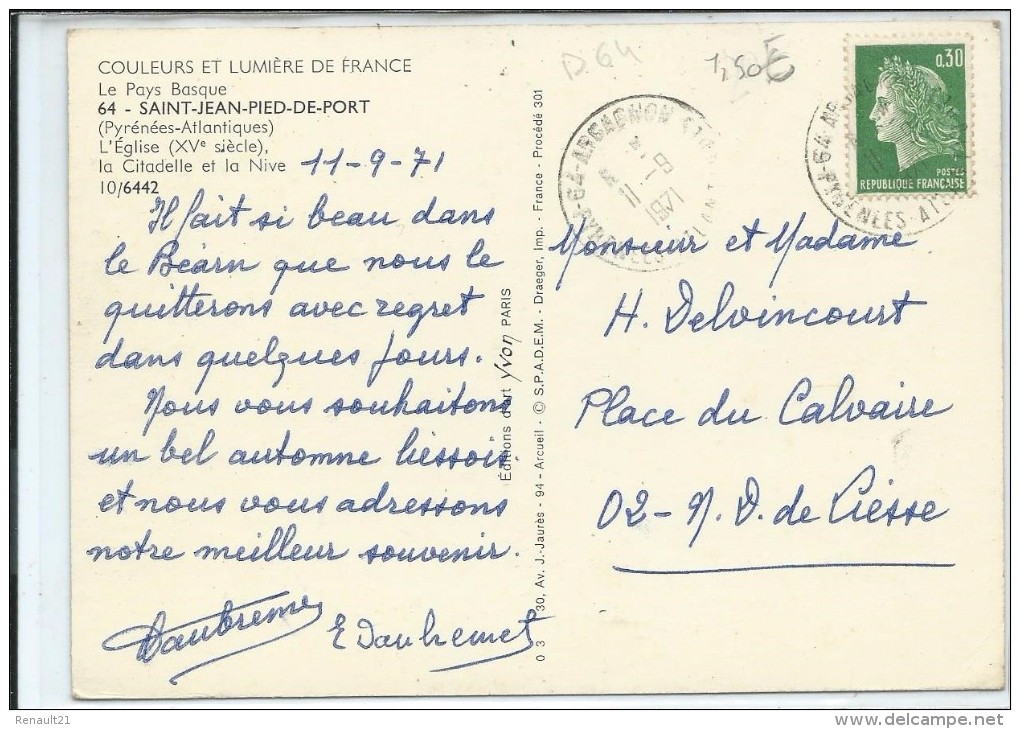 COULEURS ET LUMIÈRE DE FRANCE
Le Pays Basque
64 - SAINT-JEAN-PIED-DE-PORT
(Pyrénées-Atlantiques)
L'Église (XVe siècle),
la Citadelle et la Nive
10/6442
11-9-71
Il fait si beau dans
le Béarn que nous le
quitterons avec regret
dans quelques jours.
Nous vous souhaitons
un bel automne liessois
et nous vous adressons
notre meilleur souvenir.
E Daubremet
0 3 30, Av. J.-Jaurès - 94 - Arcueil - © S.P.A.D.E.M. - Draeger, Imp. - France - Procédé 301
Éditions d'art Yvon PARIS
D.64
0,30
POSTES
RÉPUBLIQUE FRANÇAISE
64-ARGAGNON
11 -9 1971
PYRENEES
Monsieur et Madame
H. Delvincourt
Place du Calvaire
02-N. D. de Liesse
Renault21
delcampe.net